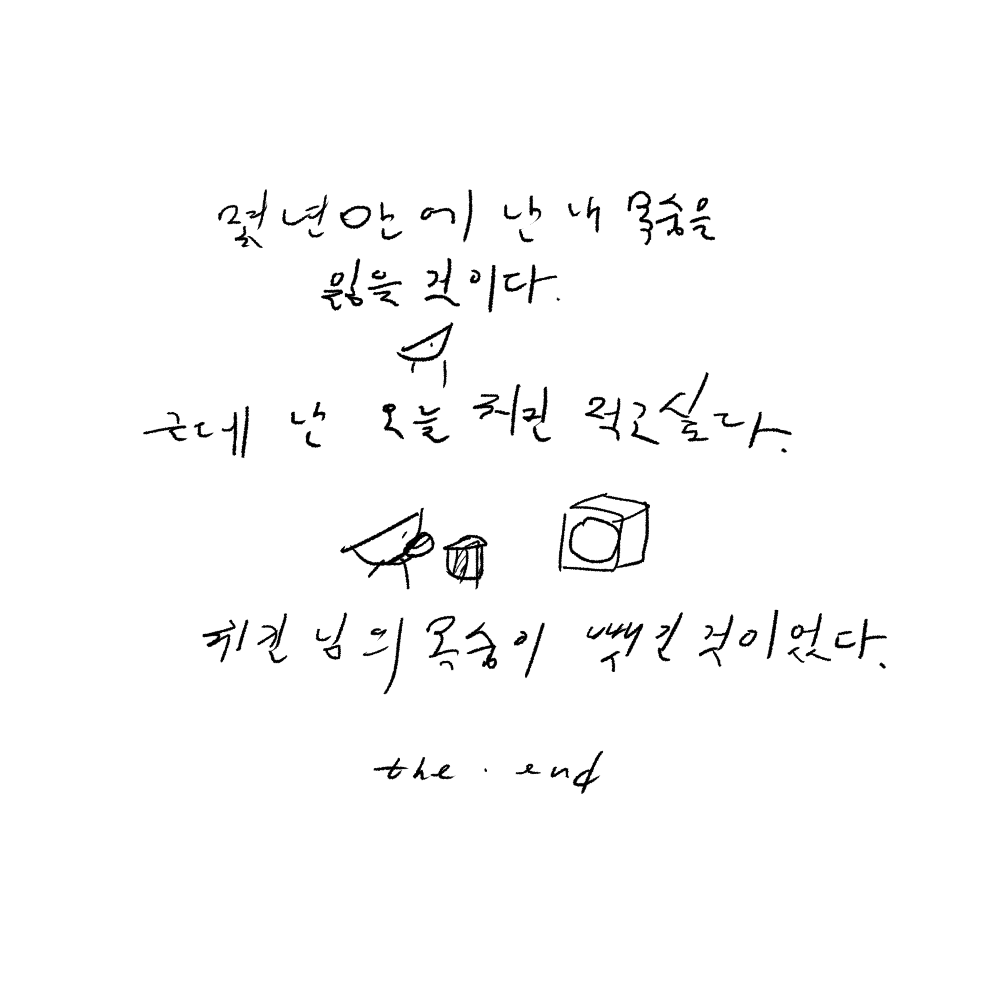 몇년안에 난 내 목숨을
잃을 것이다.
근데 난 오늘 치킨 먹고싶다.
치킨님의 목숨이 뺏긴것이었다.
the . end